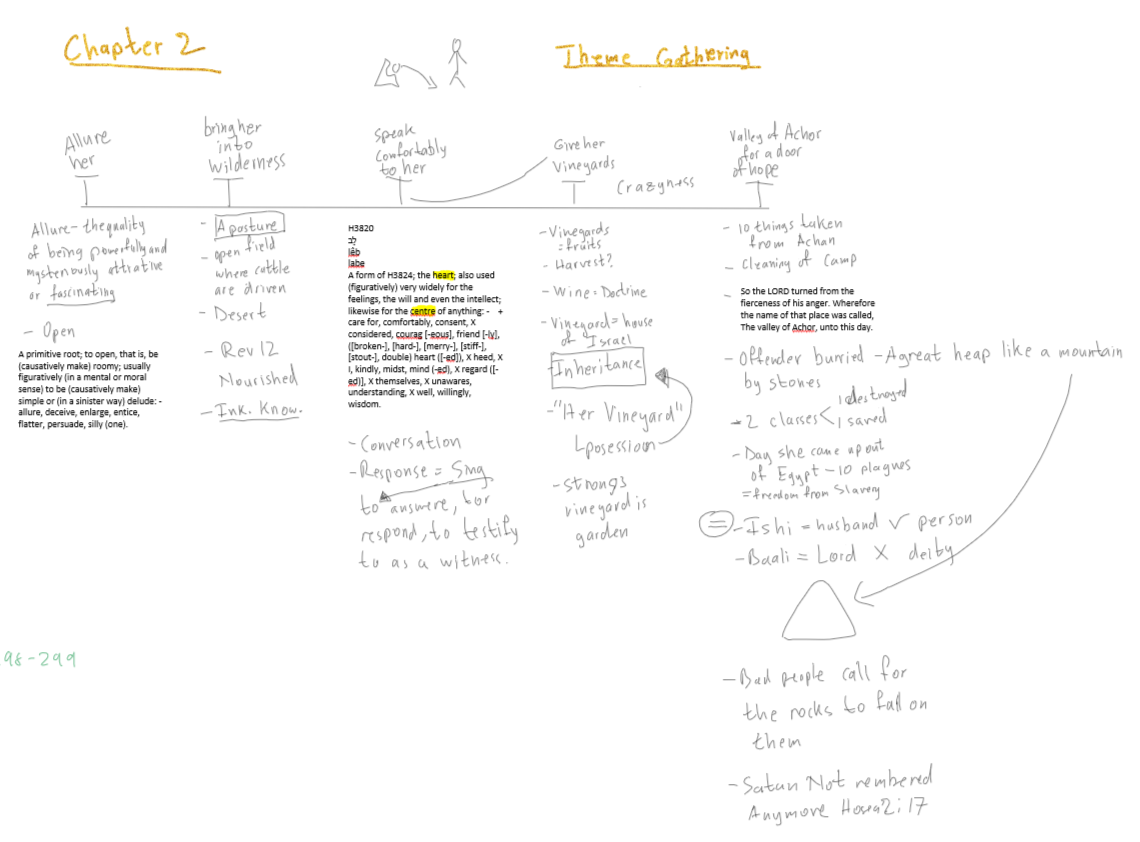 Chapter 2
Theme Gathering
Allure
her
bring her
into
Wilderness
Speak
Comfortably
to her
Give her
Vineyards
Crazyness
Valley of Achor
for a door
of hope
Allure - the quality
of being powerfully and
mysteriously attrative
or fascinating
- Open
A primitive root; to open, that is, be
(causatively make) roomy; usually
figuratively (in a mental or moral
sense) to be (causatively make)
simple or (in a sinister way) delude: -
allure, deceive, enlarge, entice,
flatter, persuade, silly (one).
- A posture
- open field
where cattle
are driven
- Desert
- Rev 12
Nourished
- Ink. Know.
H3820
לב
lêb
labe
A form of H3824; the heart; also used
(figuratively) very widely for the
feelings, the will and even the intellect;
likewise for the centre of anything: - +
care for, comfortably, consent, X
considered, courag [-eous], friend [-ly],
([broken-], [hard-], [merry-], [stiff-],
[stout-], double) heart ([-ed]), X heed, X
I, kindly, midst, mind (-ed), X regard ([-
ed)], X themselves, X unawares,
understanding, X well, willingly,
wisdom.
- Conversation
- Response = Sing
to answere, to
respond, to testify
to as a witness.
- Vineyards
= fruits
- Harvest?
- Wine = Doctrine
- Vineyard = house
of Israel
Inheritance
- "Her Vineyard"
posession
- Strongs
vineyard is
garden
- 10 things taken
from Achan
- Cleaning of Camp
- So the LORD turned from the
fierceness of his anger. Wherefore
the name of that place was called,
The valley of Achor, unto this day.
- Offender burried - A great heap like a mountain
by stones
- 2 classes < 1 destroyed
1 saved
- Day she came up out
of Egypt - 10 plagues
= freedom from Slavery
= - Ishi = husband ✓ person
- Baali = Lord X deity
- Bad people call for
the rocks to fall on
them
- Satan Not rembered
Anymore Hosea 2:17
98-299